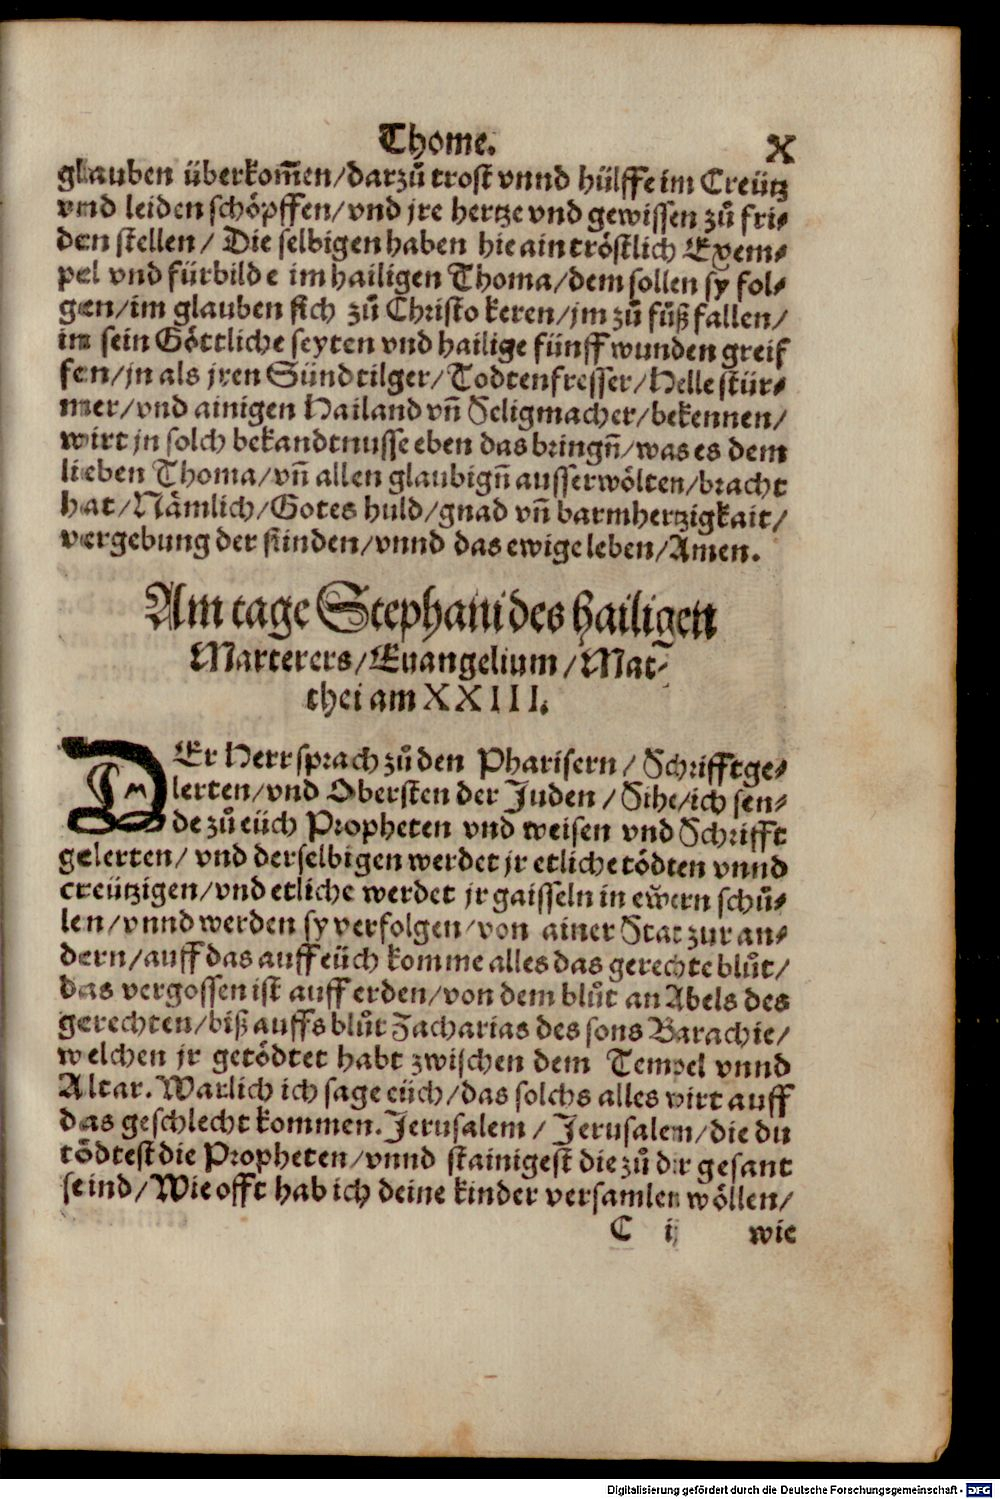 Thome. X
glauben überkom̄en/darzů trost vnnd hülffe im Creütz
vnd leiden schöpffen/vnd jre hertze vnd gewissen zů fri-
den stellen/ Die selbigen haben hie ain tröstlich Exem-
pel vnd fürbilde im hailigen Thoma/dem sollen sy fol-
gen/im glauben sich zů Christo keren/jm zů fůß fallen/
in sein Göttliche seyten vnd hailige fünff wunden greif
fen/jn als jren Sündtilger/Todtenfresser/Helle stür-
mer/vnd ainigen Hailand vn̄ Seligmacher/bekennen/
wirt jn solch bekandtnusse eben das bringn̄/was es dem
lieben Thoma/vn̄ allen glaubign̄ ausserwölten/bracht
hat/Nämlich/Gotes huld/gnad vn̄ barmhertzigkait/
vergebung der sünden/vnnd das ewige leben/Amen.
Am tage Stephani des hailigen
Marterers/Euangelium/Mat-
thei am XXIII.
DEr Herr sprach zů den Pharisern/Schrifftge-
lerten/vnd Obersten der Juden/Sihe/ich sen-
de zů eüch Propheten vnd weisen vnd Schrifft
gelerten/ vnd derselbigen werdet jr etliche tödten vnnd
creützigen/vnd etliche werdet jr gaisseln in ewern schů-
len/vnnd werden sy verfolgen/von ainer Stat zur an-
dern/auff das auff eüch komme alles das gerechte blůt/
das vergossen ist auff erden/von dem blůt an Abels des
gerechten/biß auffs blůt Zacharias des sons Barachie/
welchen jr getödtet habt zwischen dem Tempel vnnd
Altar. Warlich ich sage eüch/das solchs alles wirt auff
das geschlecht kommen. Jerusalem/ Jerusalem/die du
tödtest die Propheten/vnnd stainigest die zů dir gesant
seind/Wie offt hab ich deine kinder versamlen wöllen/
C ij wie
Digitalisierung gefördert durch die Deutsche Forschungsgemeinschaft - DFG